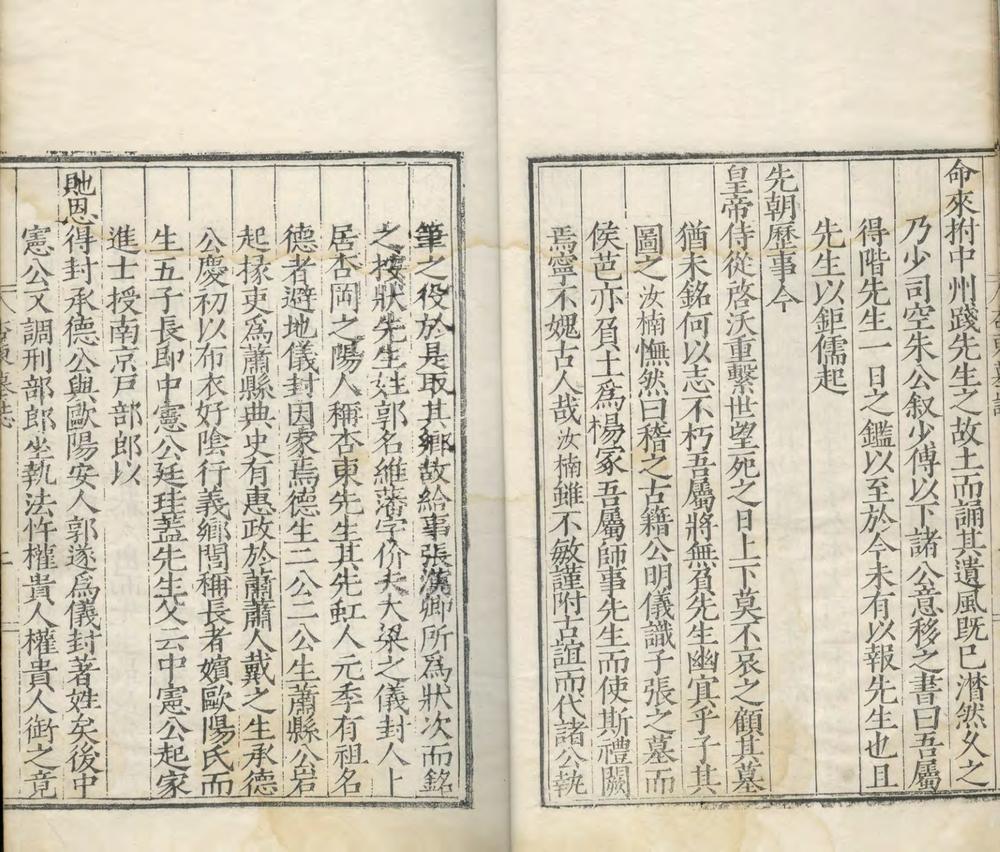 命來拊中州踐先生之故土而誦其遺風既已潸然久之
乃少司空朱公叙少傅以下諸公意移之書曰吾屬
得階先生一日之鑑以至於今未有以報先生也且
先生以鉅儒起
先朝歷事今
皇帝侍從啓沃重繫世望死之日上下莫不哀之顧其墓
猶未銘何以志不朽吾屬將無負先生幽宜乎子其
圖之汝楠憮然曰稽之古籍公明儀識子張之墓而
侯芭亦負土爲楊冢吾屬師事先生而使斯禮闕
焉寧不媿古人哉汝楠雖不敏謹附古誼而代諸公執
筆之役於是取其鄉故給事張漢卿所爲狀次而銘
之按狀先生姓郭名維藩字价夫大梁之儀封人上
居杏岡之陽人稱杏東先生其先虹人元季有祖名
德者避地儀封因家焉德生二公二公生蕭縣公岩
起掾吏爲蕭縣典史有惠政於蕭蕭人戴之生承德
公慶初以布衣好陰行義鄉閭稱長者嬪歐陽氏而
生五子長即中憲公廷珪蓋先生父云中憲公起家
進士授南京戸部郎以
貤恩得封承德公與歐陽安人郭遂爲儀封著姓矣後中
憲公又調刑部郎坐執法忤權貴人權貴人銜之竟